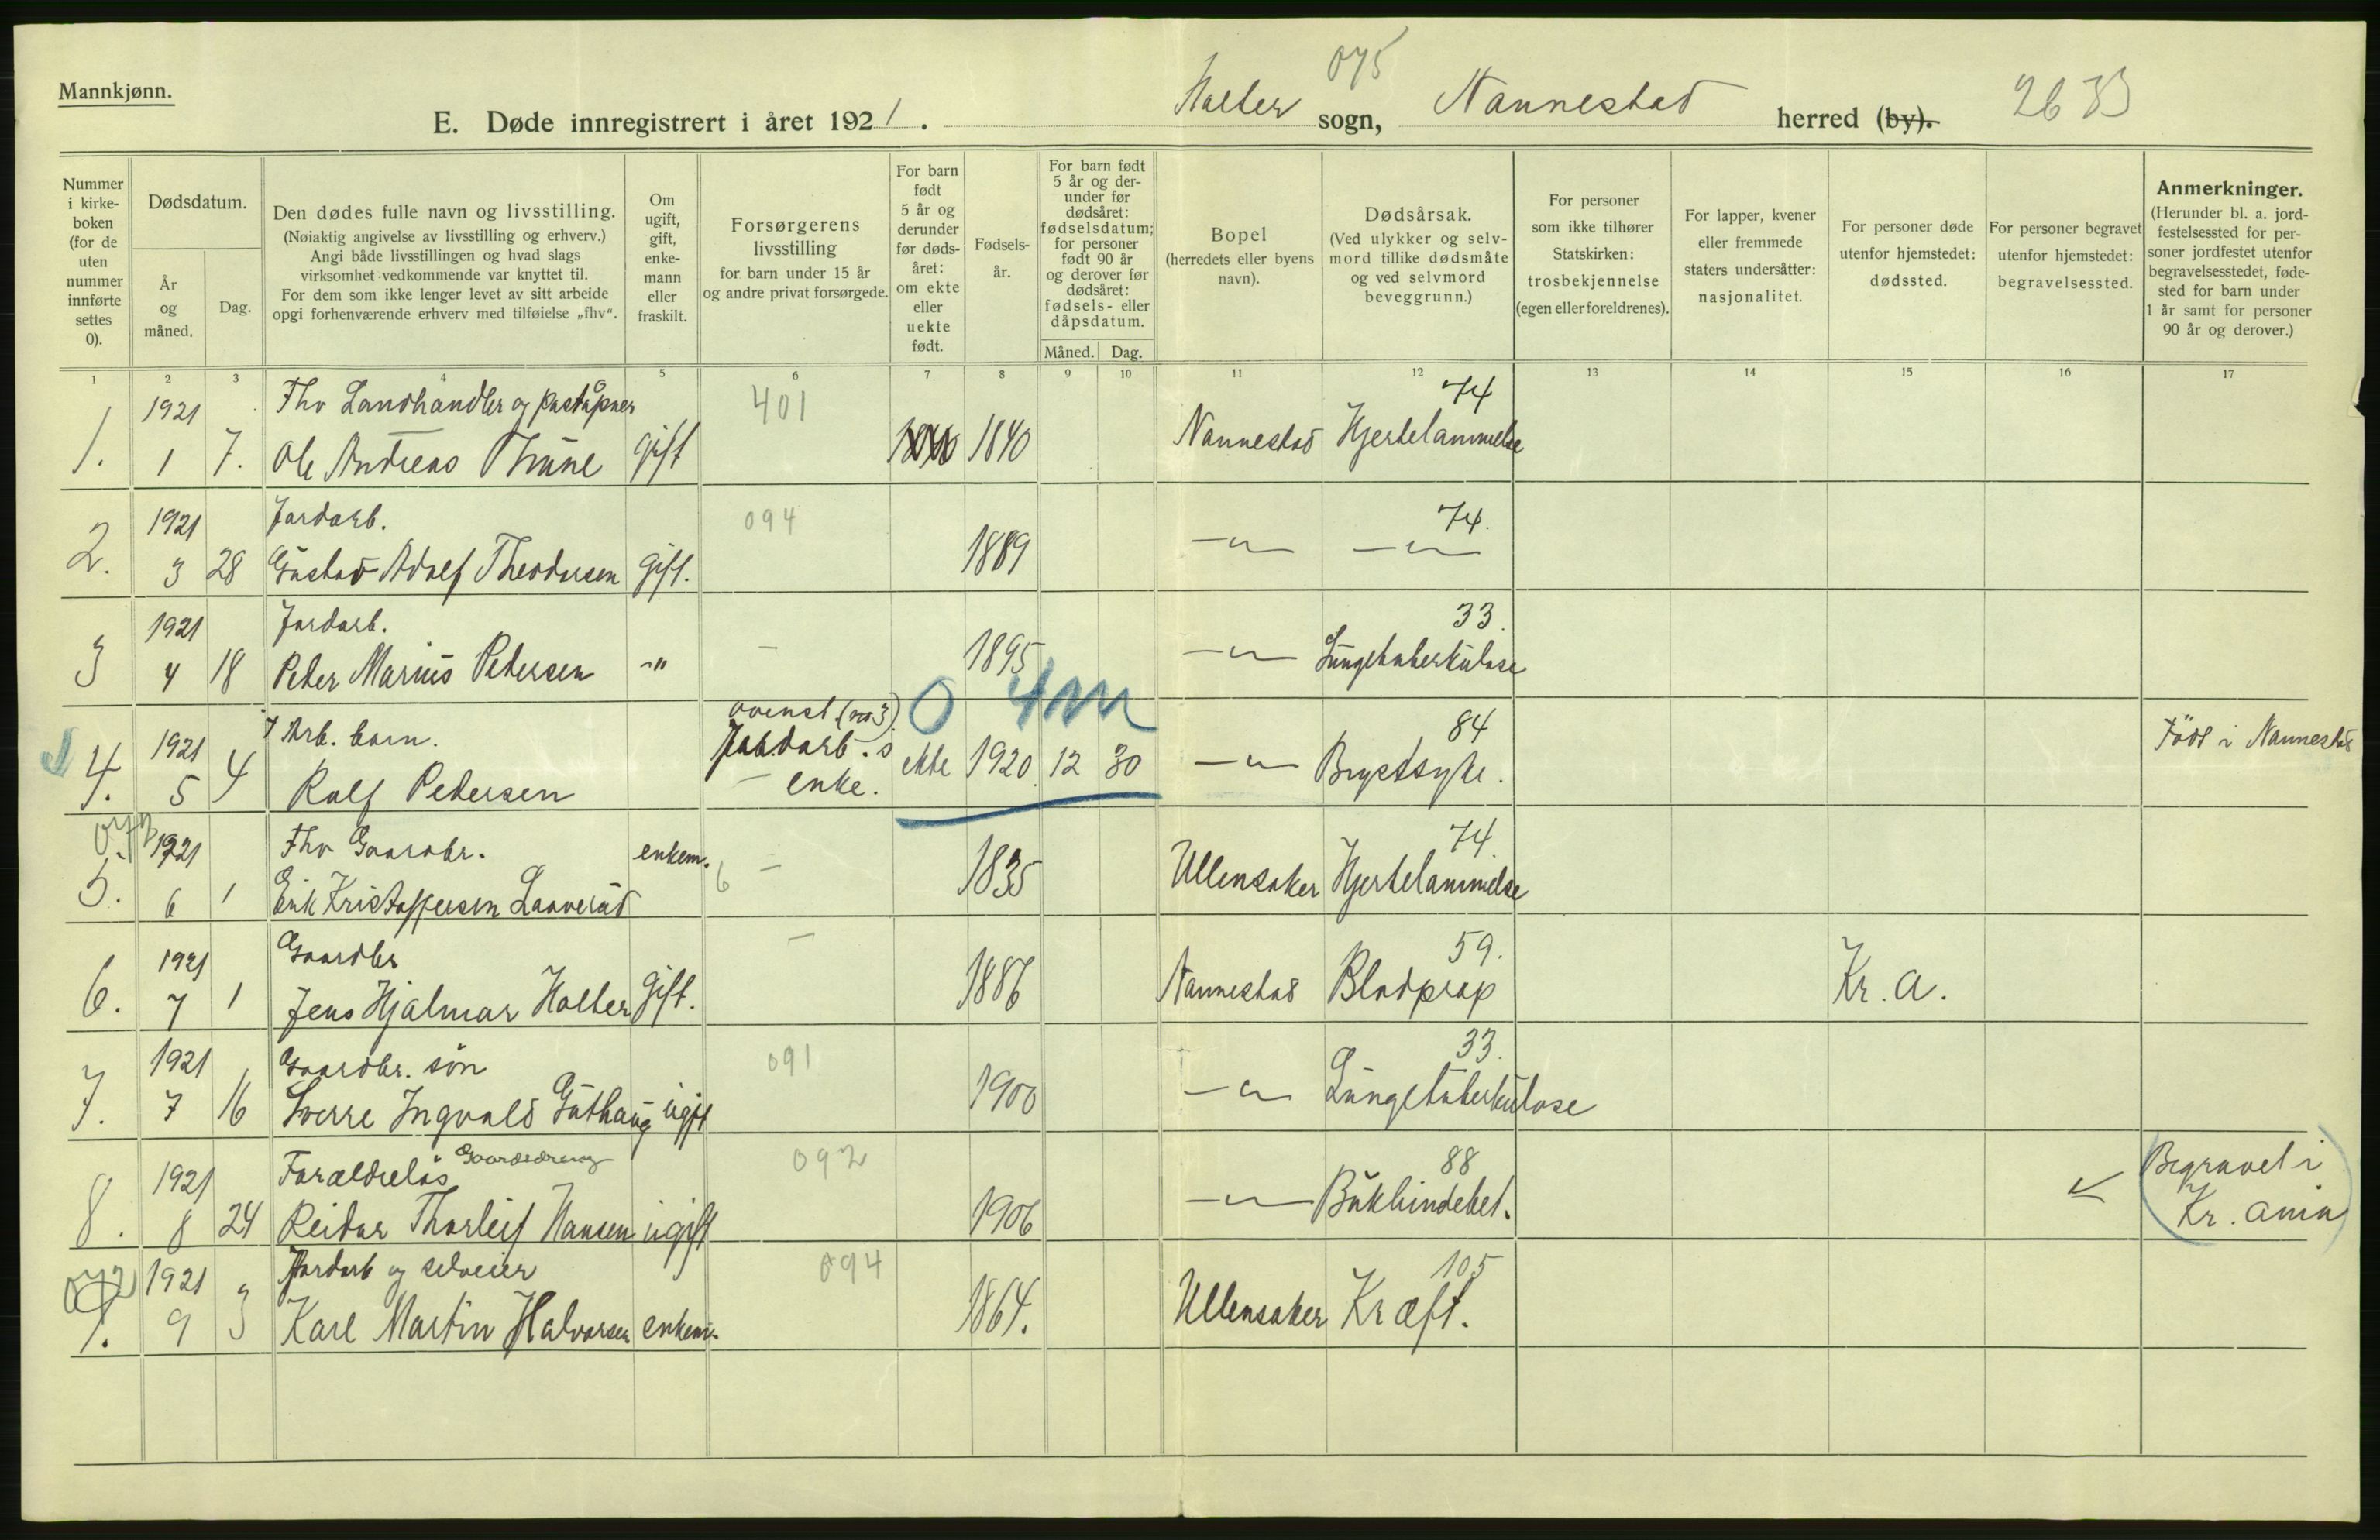 Mannkjønn.
E. Døde innregistrert i året 1921.
Holter sogn, Nannestad herred (by).
075
2633
Nummer i kirke-boken (for de uten nummer innførte settes 0).
Dødsdatum.
År og måned.
Dag.
Den dødes fulle navn og livsstilling.
(Nøiaktig angivelse av livsstilling og erhverv.)
Angi både livsstillingen og hvad slags
virksomhet vedkommende var knyttet til.
For dem som ikke lenger levet av sitt arbeide
opgi forhenværende erhverv med tilføielse „fhv“.
Om ugift, gift, enke-mann eller fraskilt.
Forsørgerens livsstilling
for barn under 15 år
og andre privat forsørgede.
For barn født 5 år og derunder før døds-året: om ekte eller uekte født.
Fødsels-år.
For barn født 5 år og der-under før dødsåret: fødselsdatum; for personer født 90 år og derover før dødsåret: fødsels- eller dåpsdatum.
Måned. Dag.
Bopel
(herredets eller byens navn).
Dødsårsak.
(Ved ulykker og selv-mord tillike dødsmåte og ved selvmord beveggrunn.)
For personer som ikke tilhører Statskirken: trosbekjennelse (egen eller foreldrenes).
For lapper, kvener eller fremmede staters undersåtter: nasjonalitet.
For personer døde utenfor hjemstedet: dødssted.
For personer begravet utenfor hjemstedet: begravelsessted.
Anmerkninger.
(Herunder bl. a. jord-festelsessted for per-soner jordfestet utenfor begravelsesstedet, føde-sted for barn under 1 år samt for personer 90 år og derover.)
1 2 3 4 5 6 7 8 9 10 11 12 13 14 15 16 17
1921 Fhv Landhandler og poståpner 401 74
1. 1 7. Ole Andreas Thune gift 1840 1840 Nannestad Hjertelammelse
1921 Jordarb. 094 74.
2. 3 28 Gustav Adolf Theodorsen gift. 1889 —"— —"—
1921 Jordarb. 33.
3 4 18 Peter Marius Pedersen -" — 1895 —"— Lungetuberkulose
0 4m
1921 Arb. barn. ovenst (no 3) 84
4. 5 4 Rolf Pedersen Jordarb. s enke. ekte 1920 12 30 —"— Brystsyke. Född i Nannestad
072 1921 Fhv Gaardbr. enkem. 74.
5. 6 1 Erik Kristoffersen Laaverud 6 — 1835 Ullensaker Hjertelammelse
1921 Gaardbr — 59.
6. 7 1 Jens Hjalmar Holter gift. 1886 Nannestad Blodprop Kr. a.
1921 Gaardbr. søn 091 33.
7. 7 16 Sverre Ingvald Guthaug ugift 1900 —"— Lungetuberkulose
1921 Forældreløs Gaardsdreng 092 88 Begravet i
8. 8 24 Reidar Thorleif Hansen ugift 1906 —"— Bukhindebet. Kr. ania
072 1921 Jordarb og selveier 094 105
9. 9 3 Karl Martin Halvorsen enkem. 1864. Ullensaker Kræft.